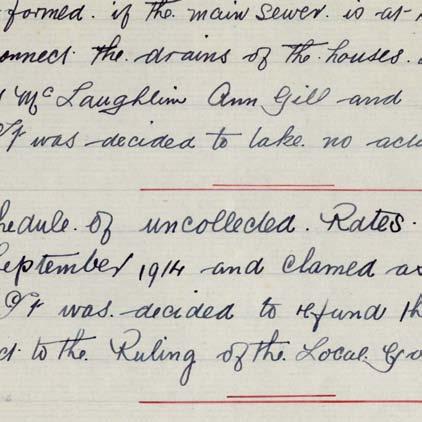 formed. if the main sewer. is at
onnect the. drains of the. houses.
McLaughlin Ann Gill and
It was decided to take no act
hedule. of uncollected. Rates.
September 1914 and clamed as
It was. decided to refund th
ct to the. Ruling of the. Local. Go